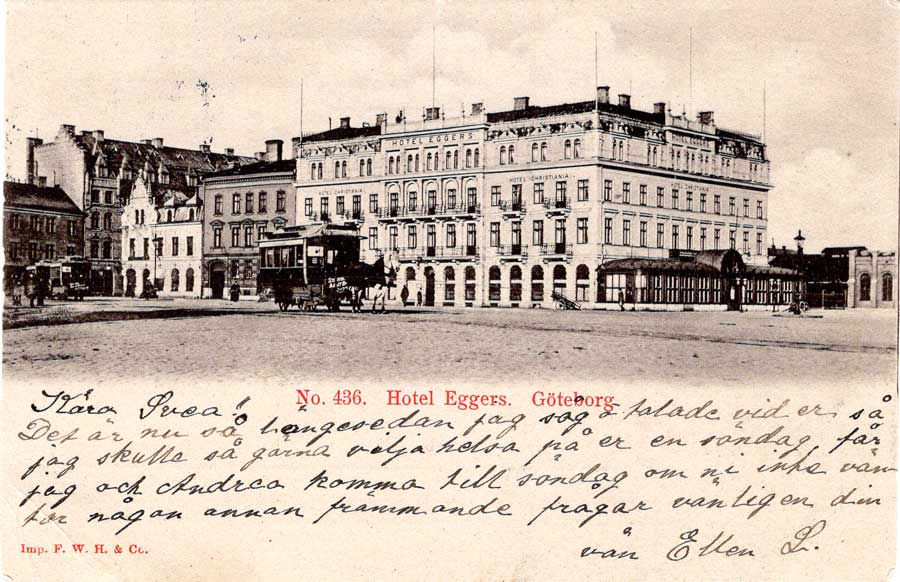 HOTEL EGGERS
HOTEL CHRISTIANIA
HOTEL CHRISTIANIA
HOTEL CHRISTIANIA
No. 436. Hotel Eggers. Göteborg
Kära Svea!
Det är nu så längesedan jag såg o talade vid er så
jag skulle så gärna vilja helsa på er en söndag, får
jag och Andrea komma till söndag om ni inte vän
tar någon annan främmande frågar vänligen din
vän Ellen L.
Imp. F. W. H. & Co.